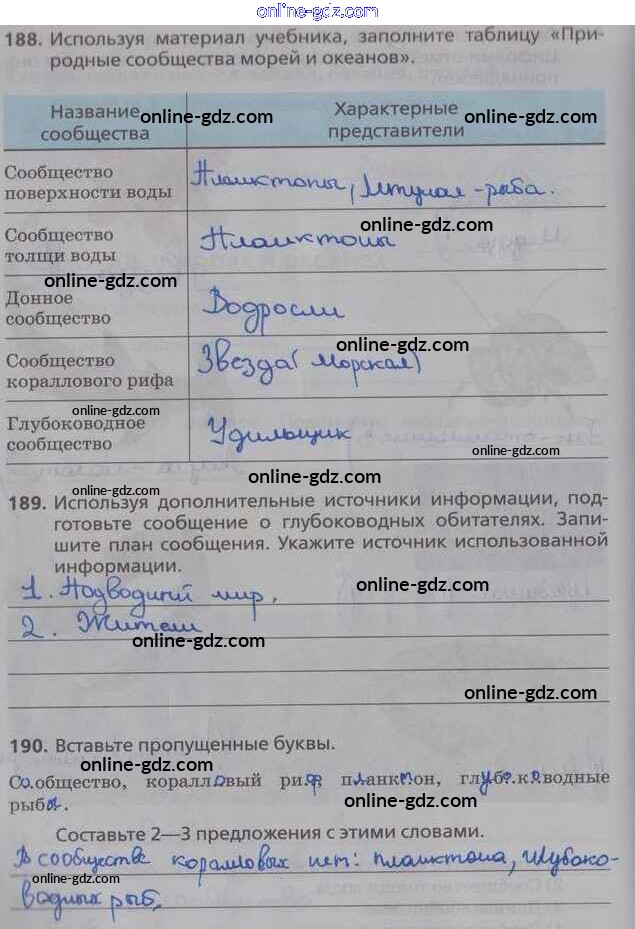 online-gdz.com
188. Используя материал учебника, заполните таблицу «При-
родные сообщества морей и океанов».
Название
сообщества
online-gdz.com
Характерные
представители
online-gdz.com
Сообщество
поверхности воды
Планктоны, Летучая-рыба.
online-gdz.com
Сообщество
толщи воды
Планктоны
online-gdz.com
Донное
сообщество
Водросли
online-gdz.com
Сообщество
кораллового рифа
Звезда (морская)
online-gdz.com
Глубоководное
сообщество
Удильщик
online-gdz.com
online-gdz.com
online-gdz.com
189. Используя дополнительные источники информации, под-
готовьте сообщение о глубоководных обитателях. Запи-
шите план сообщения. Укажите источник использованной
информации.
online-gdz.com
1. Подводный мир,
2. Жители
online-gdz.com
online-gdz.com
190. Вставьте пропущенные буквы.
online-gdz.com
Сообщество, коралловый риф, планктон, глубоководные
рыбы.
online-gdz.com
Составьте 2—3 предложения с этими словами.
В сообществе коралловых нет: планктона, глубоко-
водных рыб.
online-gdz.com